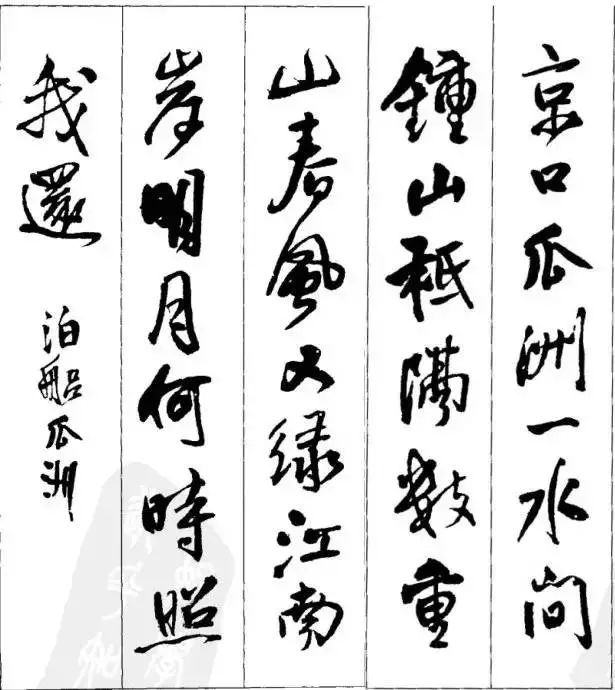 京口瓜洲一水间
鍾山祗隔數重
山春風又绿江南
岸明月何時照
我還
泊船瓜洲